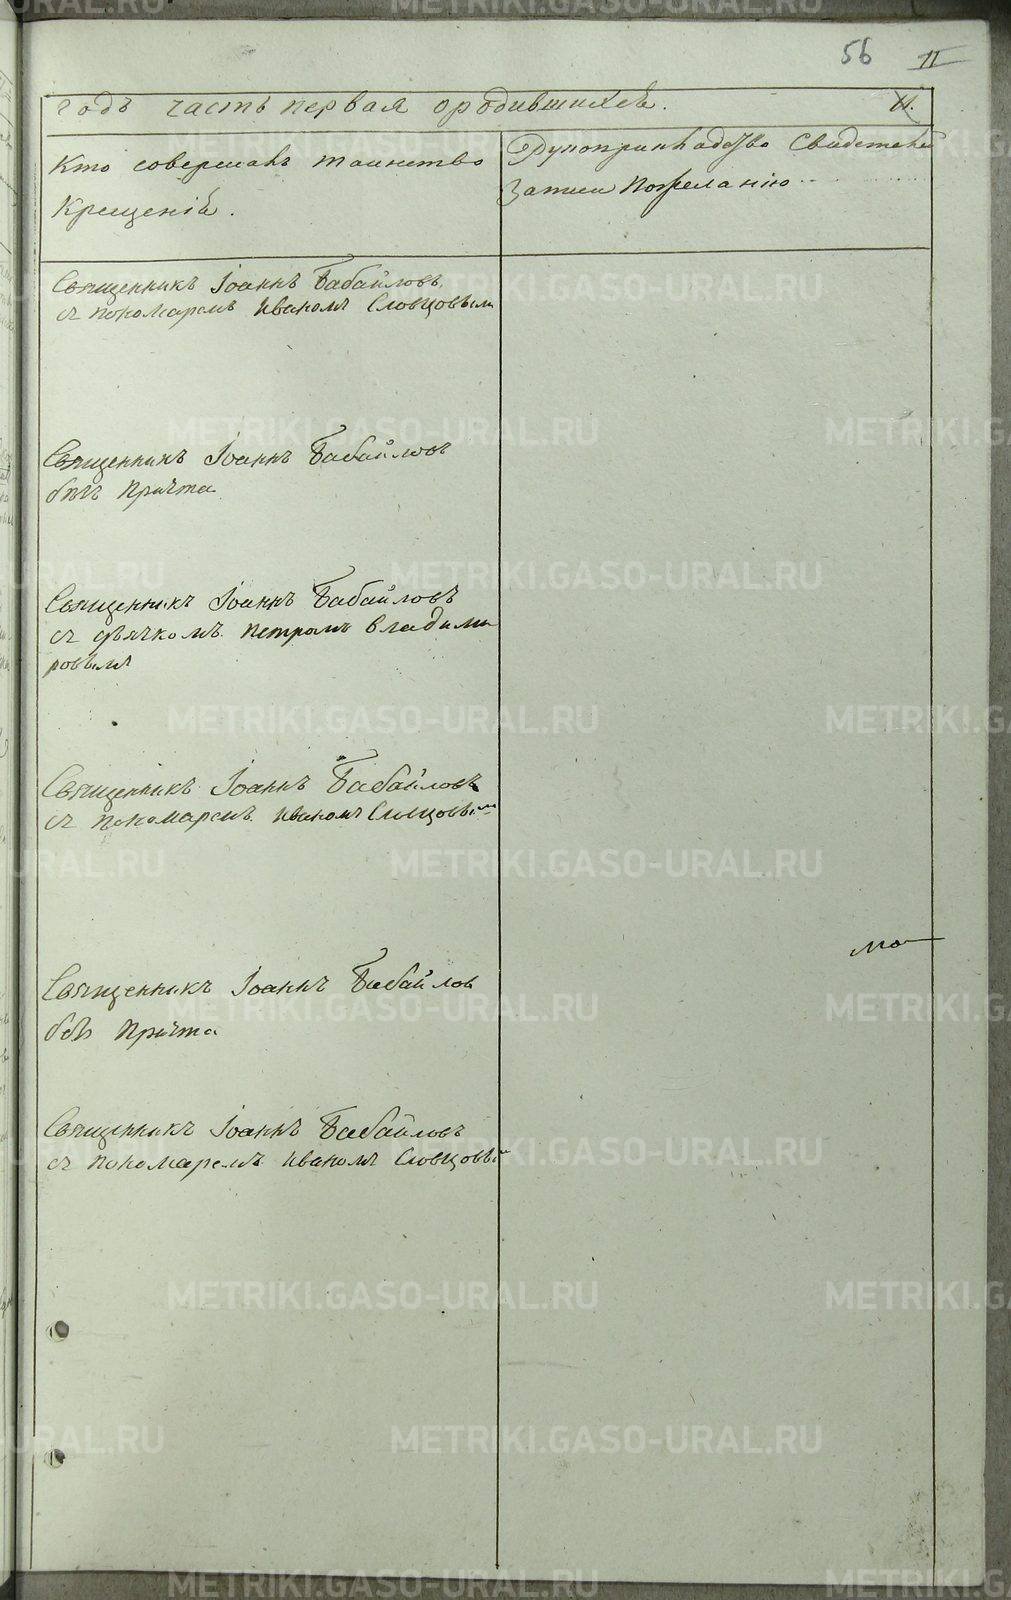 56 11
годъ часть первая ородившихся. 11.
Кто совершалъ таинство
Крещенія.
Рукоприкладство Свидетелей
Записи Пожеланію
Священникъ Іоаннъ Бабайловъ
съ пономаремъ Иваномъ Словцовым
Священникъ Іоаннъ Бабайловъ
безъ Причта
Священникъ Іоаннъ Бабайловъ
съ дьячкомъ Петромъ Владими
ровымъ
Священникъ Іоаннъ Бабайловъ
съ пономаремъ Иваномъ Словцовым
мо
Священникъ Іоаннъ Бабайлов
безъ Причта
Священникъ Іоаннъ Бабайловъ
съ пономаремъ Иваномъ Словцовым
METRIKI.GASO-URAL.RU